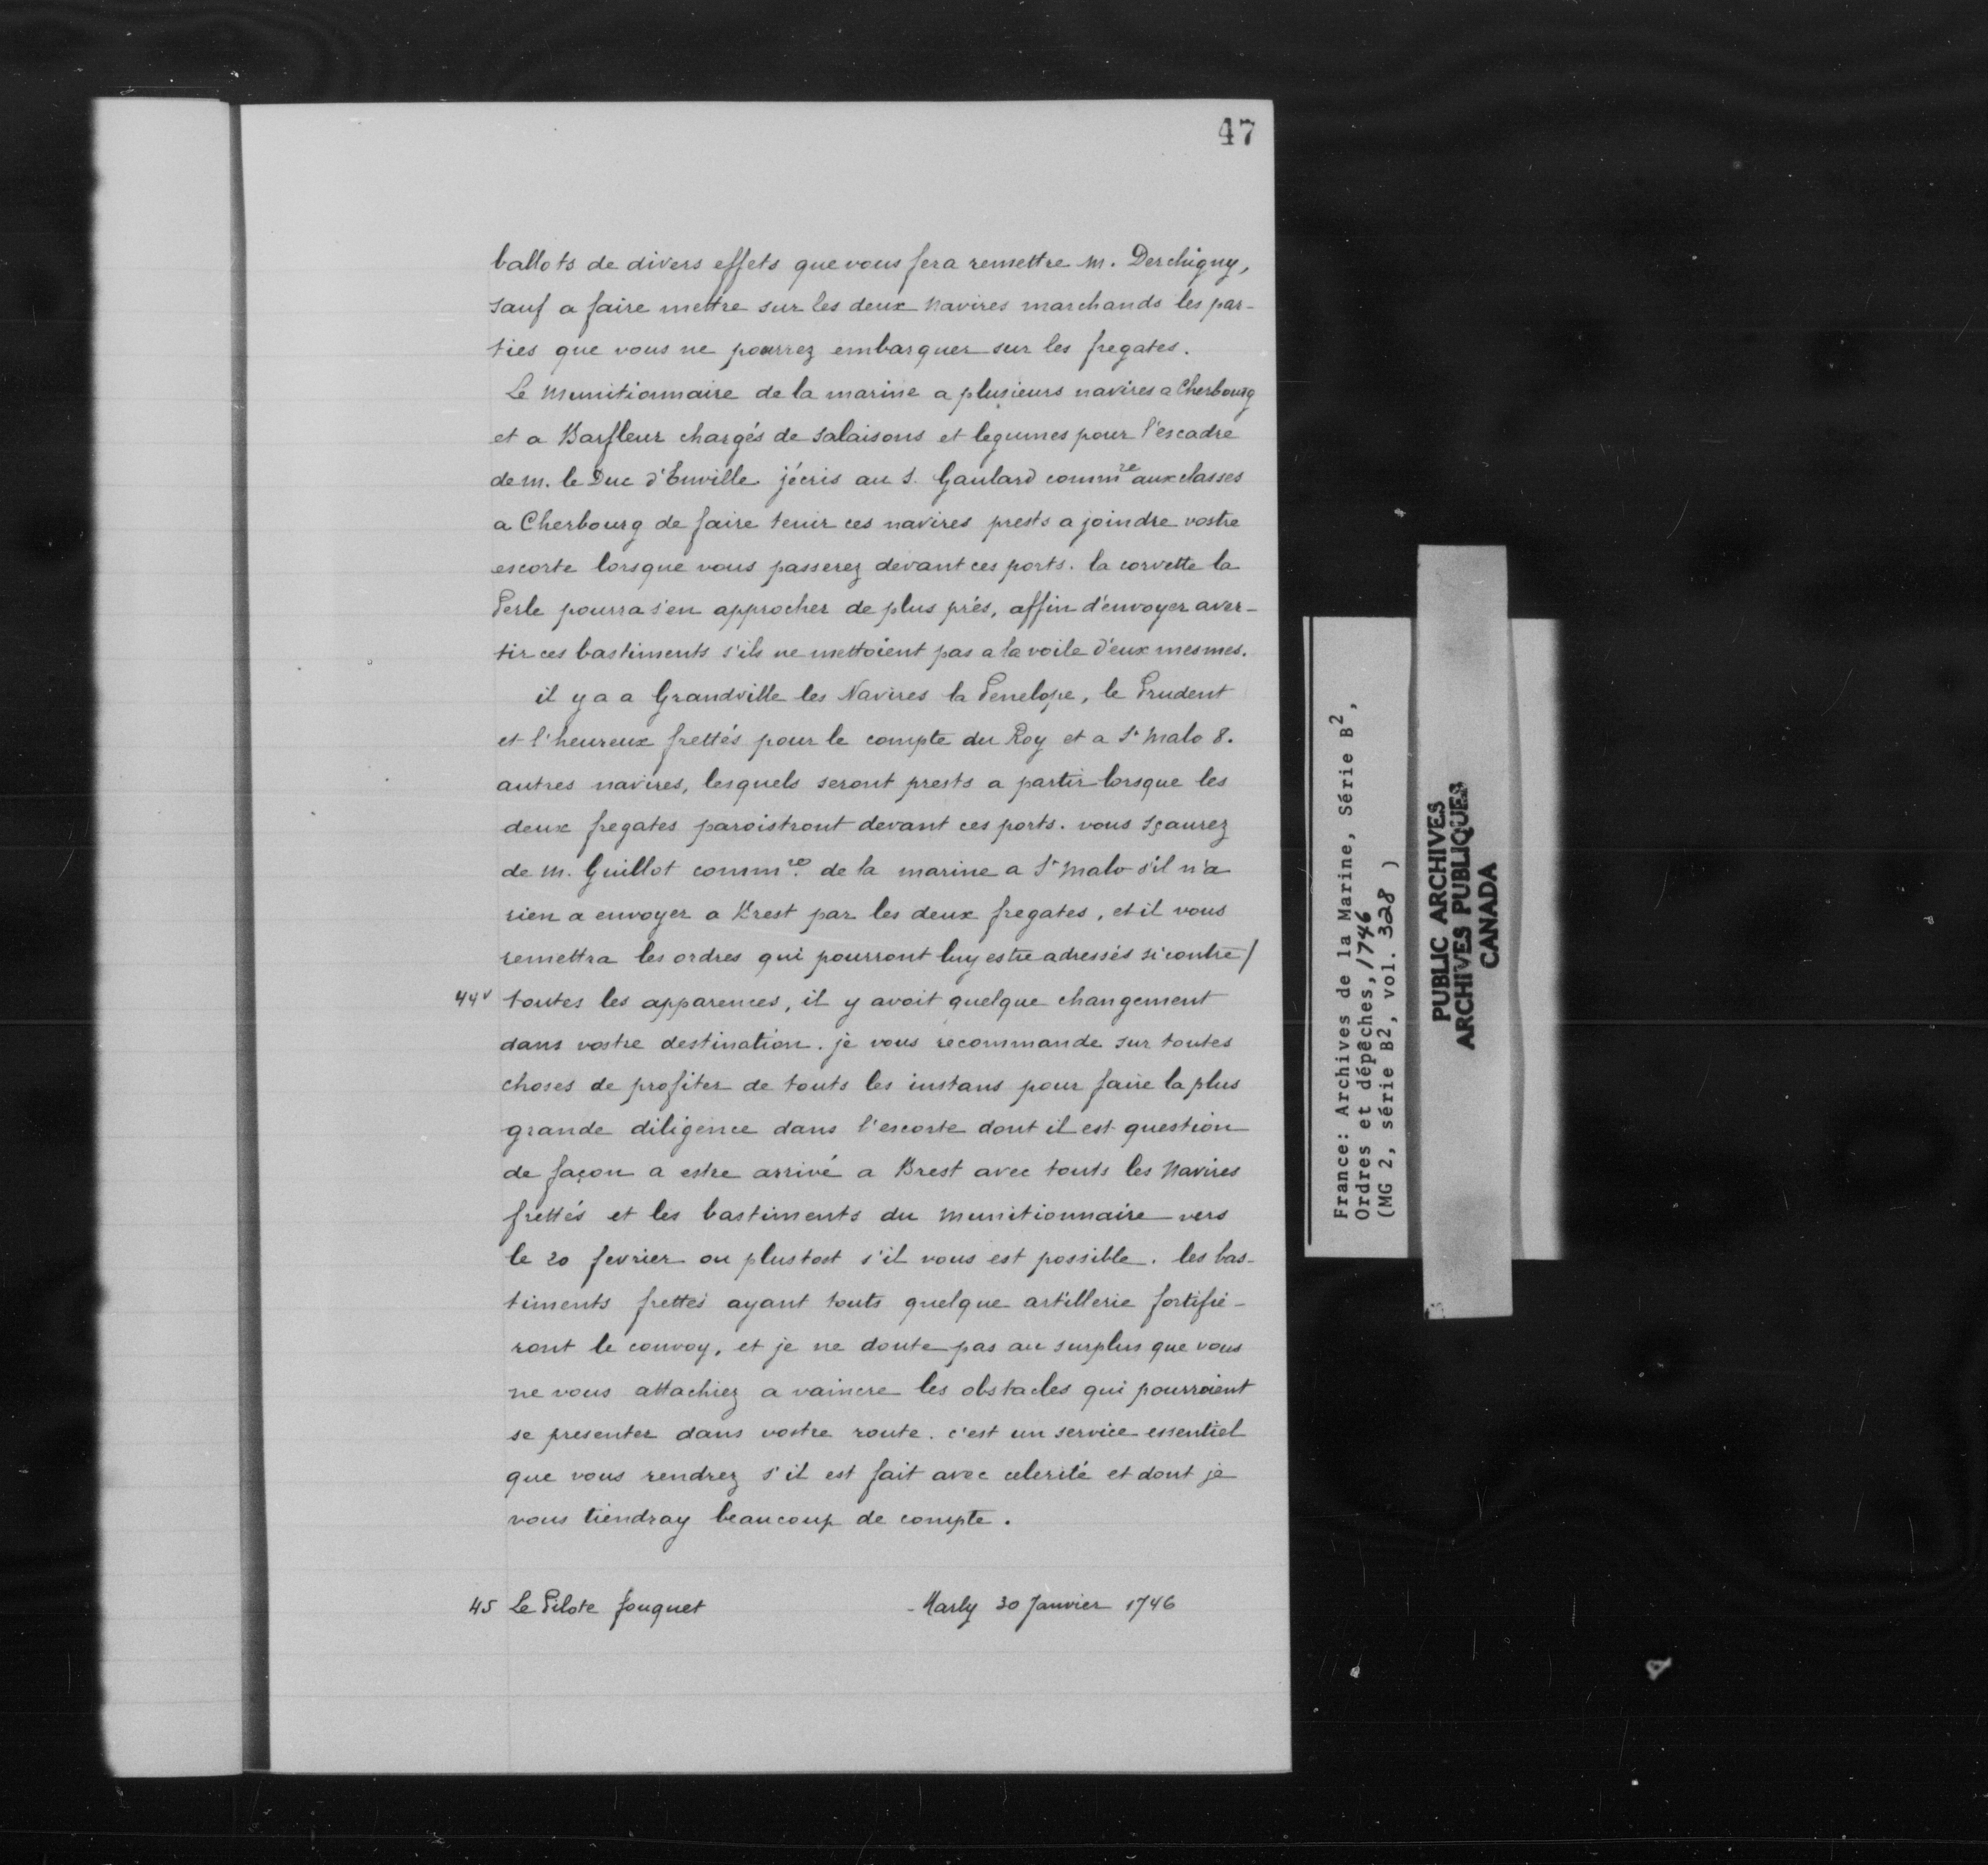 47
ballots de divers effets que vous fera remettre M. Derchigny,
sauf a faire mettre sur les deux navires marchands les par-
ties que vous ne pourrez embarquer sur les fregates.
Le Munitionnaire de la marine a plusieurs navires a Cherbourg
et a Barfleur chargés de salaisons et legumes pour l'escadre
de m. le Duc d'Enville j'écris au S. Gaulard commre aux classes
a Cherbourg de faire tenir ces navires prests a joindre vostre
escorte lorsque vous passerez devant ces ports. la corvette la
Perle pourra s'en approcher de plus prés, affin d'envoyer aver-
tir ces bastiments s'ils ne mettoient pas a la voile d'eux mesmes.
il y a a Grandville les Navires la Penelope, le Prudent
et l'heureux frettés pour le compte du Roy et a St Malo 8.
autres navires, lesquels seront prests a partir lorsque les
deux fregates paroistront devant ces ports. vous sçaurez
de m. Guillot commre de la marine a St Malo s'il n'a
rien a envoyer a Brest par les deux fregates, et il vous
remettra les ordres qui pourront luy estre adressés si contre/
44v toutes les apparences, il y avoit quelque changement
dans vostre destination. je vous recommande sur toutes
choses de profiter de touts les instans pour faire la plus
grande diligence dans l'escorte dont il est question
de façon a estre arrivé a Brest avec touts les Navires
frettés et les bastiments du munitionnaire vers
le 20 fevrier ou plustost s'il vous est possible. les bas-
timents frettés ayant touts quelque artillerie fortifie-
ront le convoy, et je ne doute pas au surplus que vous
ne vous attachiez a vaincre les obstacles qui pourroient
se presenter dans vostre route. c'est un service essentiel
que vous rendrez s'il est fait avec celerité et dont je
vous tiendray beaucoup de compte.
45 Le Pilote fouquet - Marly 30 Janvier 1746
France: Archives de la Marine, Série B2,
Ordres et dépêches, 1746
(MG 2, série B2, vol. 328 )
PUBLIC ARCHIVES
ARCHIVES PUBLIQUES
CANADA